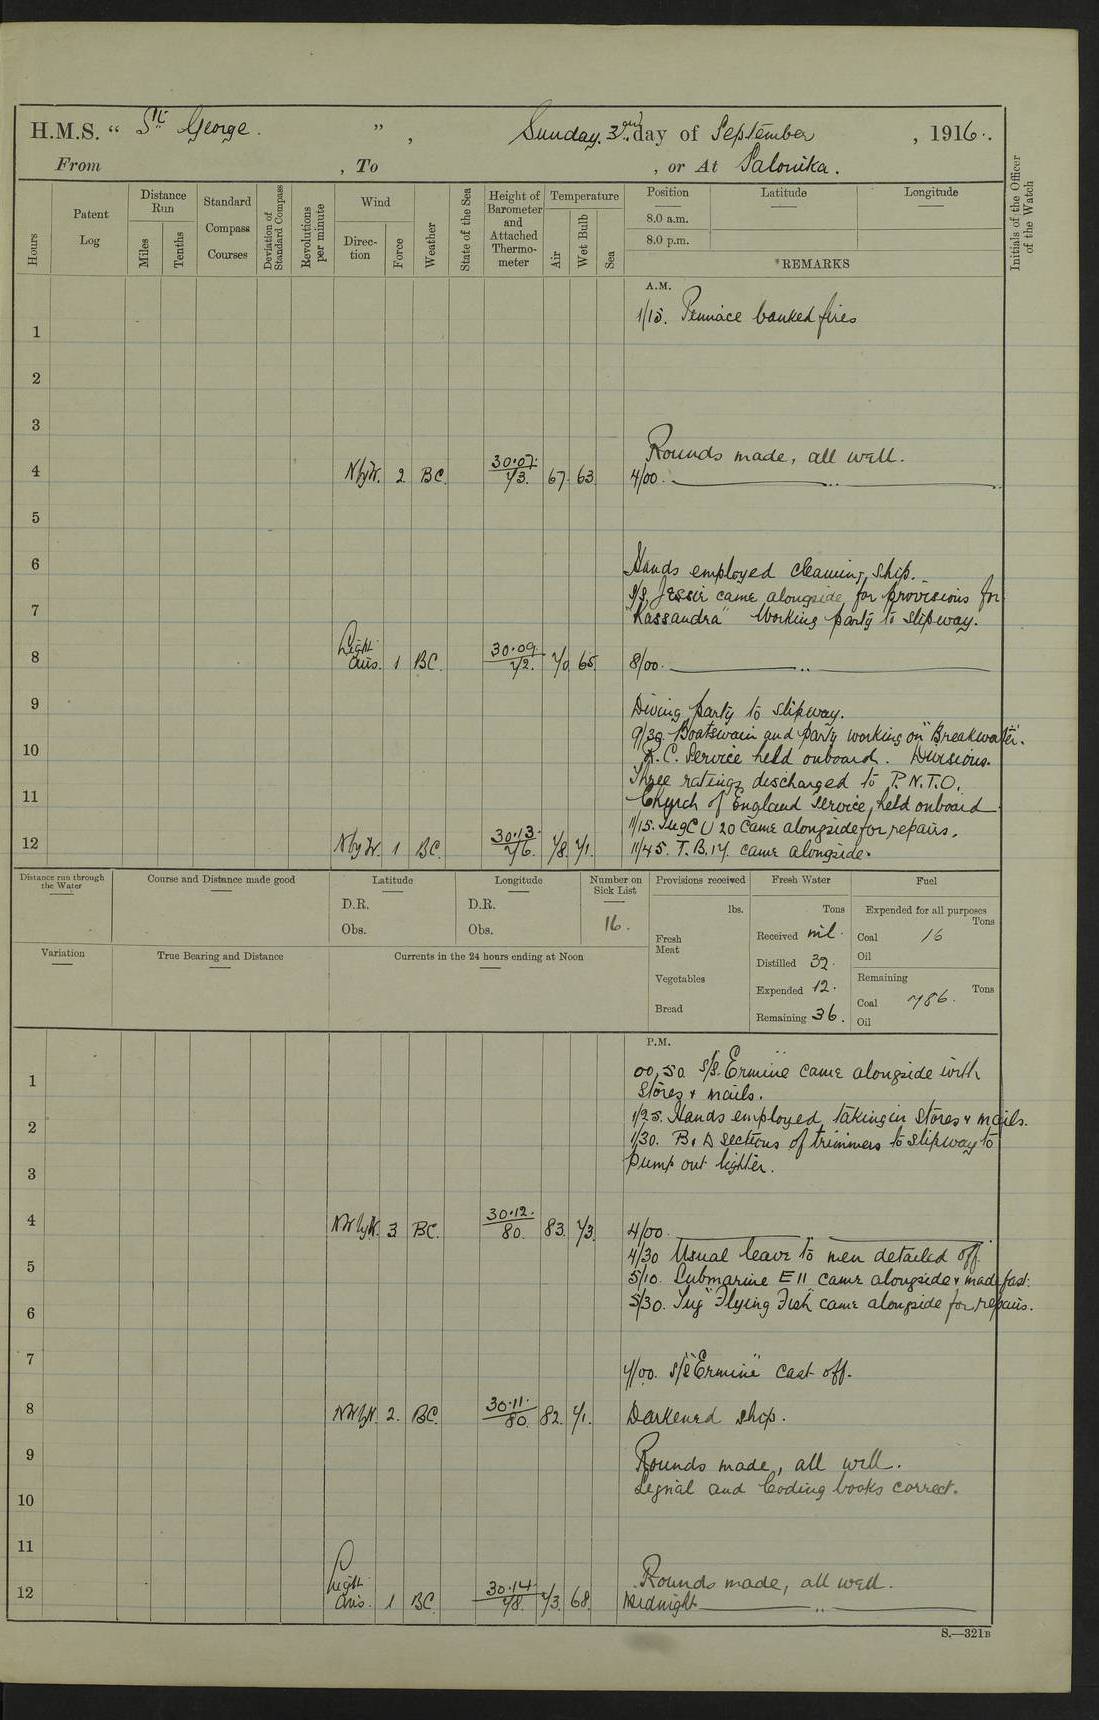 H.M.S. " St. George. ", Sunday. 3rd day of September, 1916.
From , To , or At Salonika.
Hours
Patent Log
Distance Run
Miles
Tenths
Standard Compass Courses
Deviation of Standard Compass
Revolutions per minute
Wind
Direction
Force
Weather
State of the Sea
Height of Barometer and Attached Thermometer
Temperature
Air
Wet Bulb
Sea
Position Latitude Longitude
8.0 a.m.
8.0 p.m.
*REMARKS
Initials of the Officer of the Watch
A.M.
1/15. Pinnace banked fires
1
2
3
Rounds made, all well.
4 NbyW. 2 BC. 30.07. 73. 67. 63. 4/00.
5
6
Hands employed cleaning ship.
S/S Jessie came alongside for provisions for
7
"Kassandra" Working party to slipway.
8 Light airs. 1 BC. 30.09 72. 70 65. 8/00.
9
Diving party to slipway.
9/30 Boatswain and party working on "Breakwater".
10
R.C. Service held onboard. Divisions.
Three ratings discharged to P.N.T.O.
11
Church of England Service held onboard
11/15. Tug CU 20 came alongside for repairs.
12 NbyW. 1 BC. 30.13. 76. 78. 71. 11/45. T.B. 17. came alongside.
Distance run through the Water
Course and Distance made good
Latitude
D.R.
Obs.
Longitude
D.R.
Obs.
Number on Sick List
16.
Provisions received
lbs.
Fresh Meat
Vegetables
Bread
Fresh Water
Tons
Received nil.
Distilled 32.
Expended 12.
Remaining 36.
Fuel
Expended for all purposes
Tons
Coal 16
Oil
Remaining
Tons
Coal 786.
Oil
Variation
True Bearing and Distance
Currents in the 24 hours ending at Noon
P.M.
00,50. S/S. "Ermine" came alongside with
1
Stores & mails.
1/25. Hands employed taking in Stores & mails.
2
1/30. B & D sections of trimmers to slipway to
pump out lighter.
3
4 NWbyN. 3 BC. 30.12. 80. 83. 73. 4/00.
4/30 Usual leave to men detailed off
5
5/10. Submarine E 11 came alongside & made fast.
5/30. Tug "Flying Fish" came alongside for repairs.
6
7
7/00. S/S "Ermine" cast off.
8 NWbyN. 2. BC. 30.11. 80. 82. 71. Darkened ship.
9
Rounds made, all well.
Signal and Coding books correct.
10
11
Rounds made, all well.
12 Light airs. 1 BC. 30.14. 78. 73. 68. Midnight
S.—321B